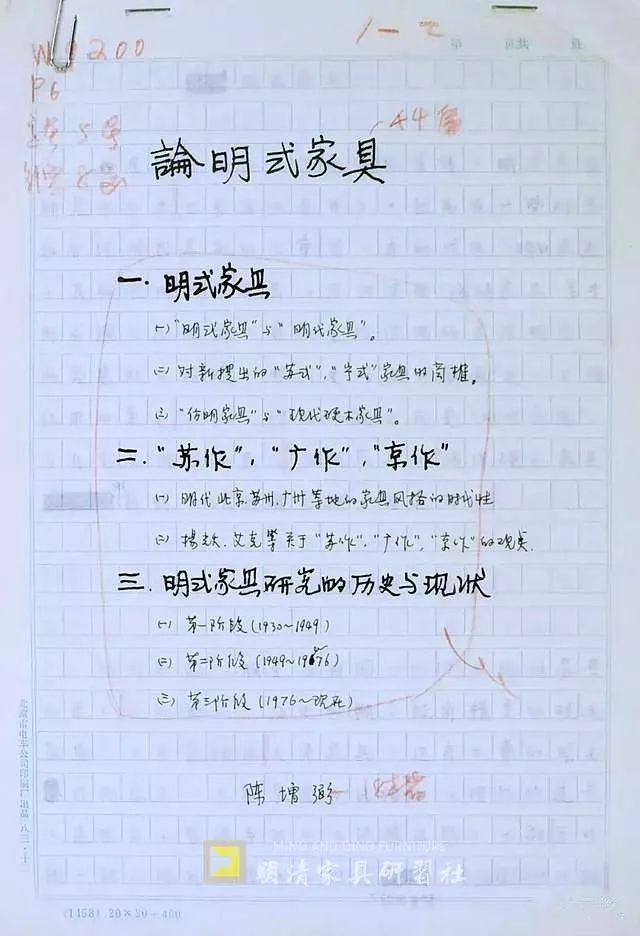 200
P6
論明式家具
一.明式家具
(一)"明式家具"与"明代家具"。
(二)对新提出的"苏式"."宁式"家具的商榷。
(三)"仿明家具"与"现代硬木家具"。
二."苏作"."广作"."京作"
(一)明代北京.苏州.广州等地的家具风格的时代性
(二)杨耀.艾克等关于"苏作"."广作"."京作"的观点.
三.明式家具研究的历史与现状
(一)第一阶段(1930~1949)
(二)第二阶段(1949~1976)
(三)第三阶段(1976~现在)
陈增弼
MING AND QING FURNITURE
明清家具研習社
北京市电车公司印刷厂出品 八三·十
(1458) 20×20=400